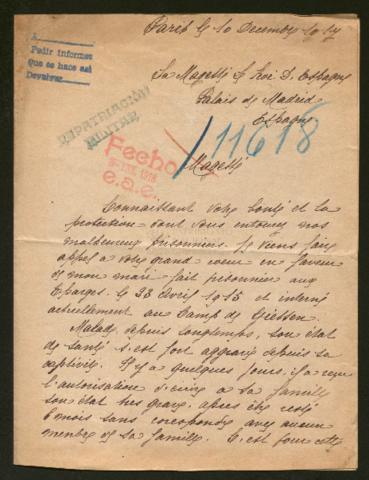 Paris le 10 Decembre 1917
A
Pedir informes
Que se hace así
Devolver
Sa Magesté le Roi d'Espagne
Palais de Madrid
Espagne
REPATRIACIÓN
MILITAR
11618
Fecho
e.a.e.
Magesté
Connaissant votre bonté et la
protection dont vous entourez nos
malheureux prisonniers. Je viens faire
appel a votre grand cœur en faveur
de mon mari fait prisonnier aux
Eparges. le 23 Avril 1915 et interné
actuellement au Camp de Giessen.
Malade depuis longtemps, son état
de santé s'est fort aggravé depuis sa
captivité. Il y a quelques jours, il a reçu
l'autorisation d'écrire a sa famille
son état tres grave, après être resté
mois sans correspondre avec aucun
membre de sa famille. C'est pour cette